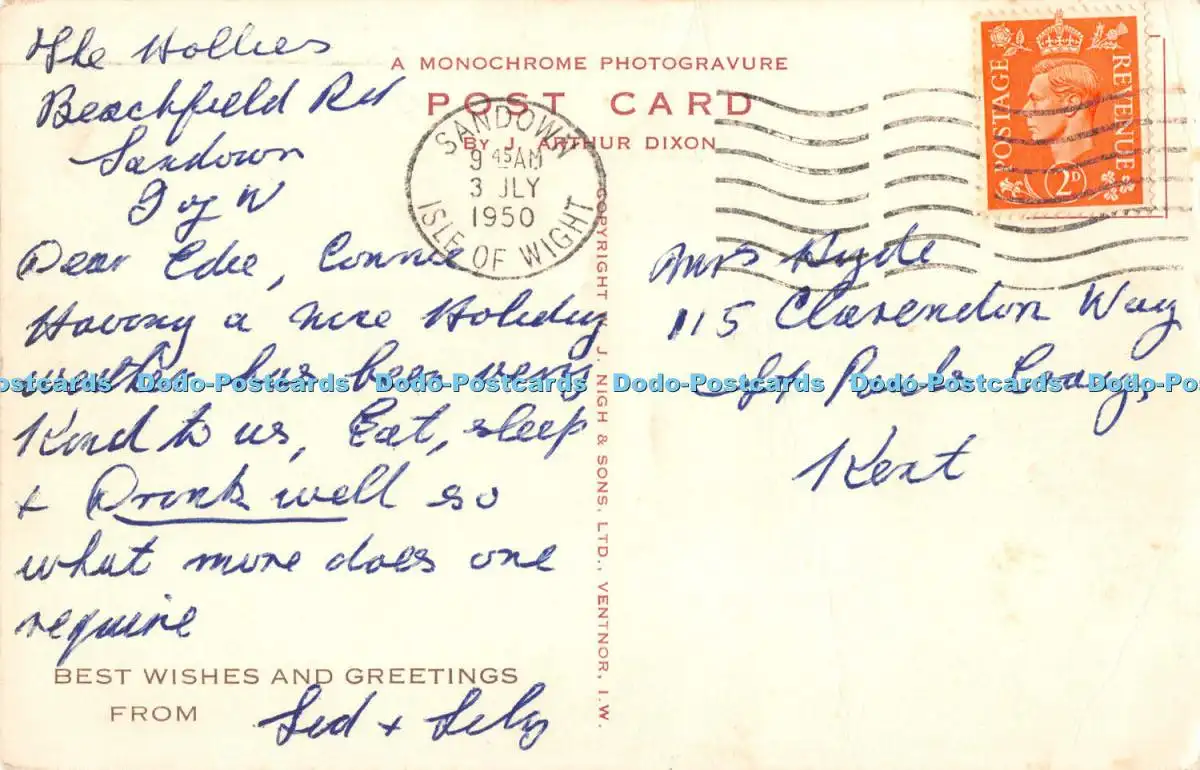 The Hollies
Beachfield Rd
Sandown
I of W
A MONOCHROME PHOTOGRAVURE
POST CARD
BY J. ARTHUR DIXON
SANDOWN
9 45 AM
3 JLY
1950
ISLE OF WIGHT
POSTAGE
REVENUE
2D
Dear Edie, Connie
Having a nice Holiday
weather has been very
Kind to us, Eat, sleep
+ Drink well so
what more does one
require
BEST WISHES AND GREETINGS
FROM
+
COPYRIGHT J. NIGH & SONS, LTD., VENTNOR, I.W.
Mrs Hyde
115 Clarendon Way
Cray,
Kent
Dodo-Postcards Dodo-Postcards Dodo-Postcards Dodo-Postcards Dodo-Postcards Dodo-Postcards